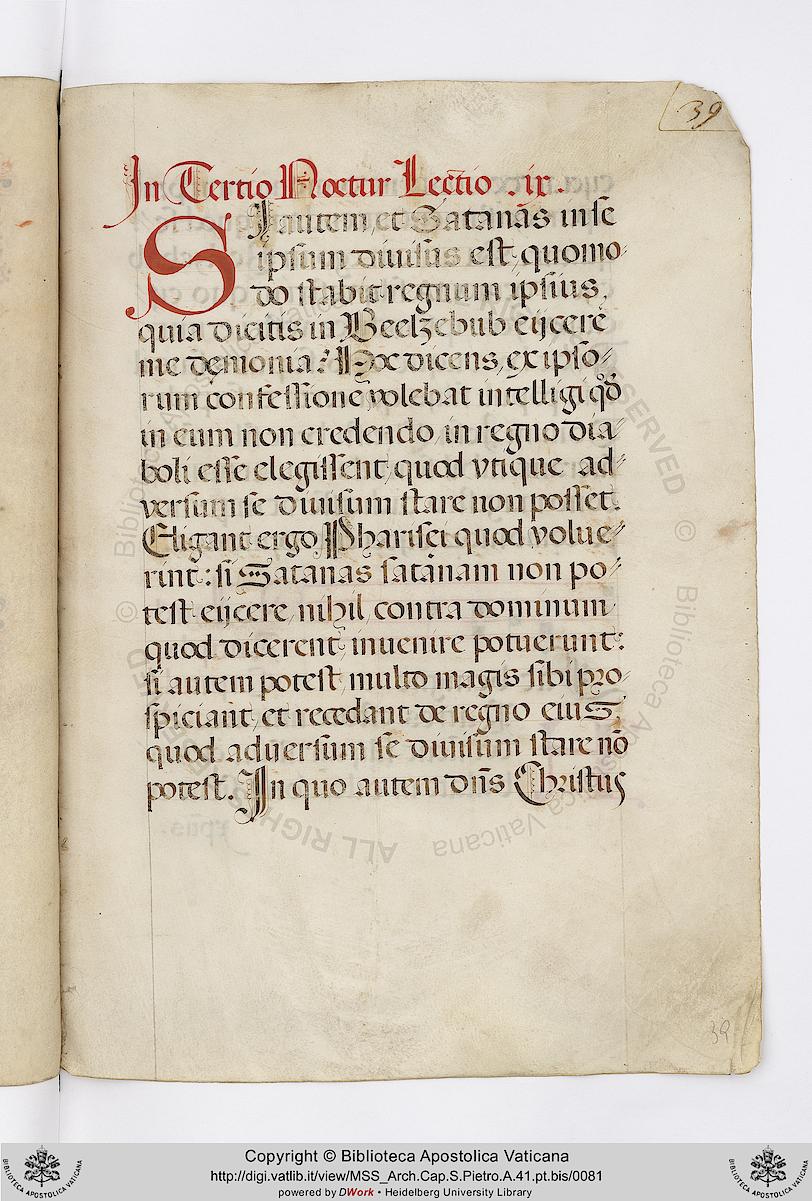 39
In Tertio Noctur Lectio .ix.
SI autem, et Satanas in se
ipsum diuisus est, quomo-
do stabit regnum ipsius,
quia dicitis in Beelzebub eijcere
me demonia? Hoc dicens, ex ipso-
rum confessione volebat intelligi qd
in eum non credendo, in regno dia-
boli esse elegissent, quod vtique ad-
versum se diuisum stare non posset.
Eligant ergo Pharisei quod volue-
rint: si Satanas satanam non po-
test eijcere, nihil contra dominum
quod dicerent, inuenire potuerunt:
si autem potest, multo magis sibi pro-
spiciant, et recedant de regno eius,
quod aduersum se diuisum stare nō
potest. In quo autem dn̄s Christus
39
Copyright © Biblioteca Apostolica Vaticana
http://digi.vatlib.it/view/MSS_Arch.Cap.S.Pietro.A.41.pt.bis/0081
powered by DWork • Heidelberg University Library